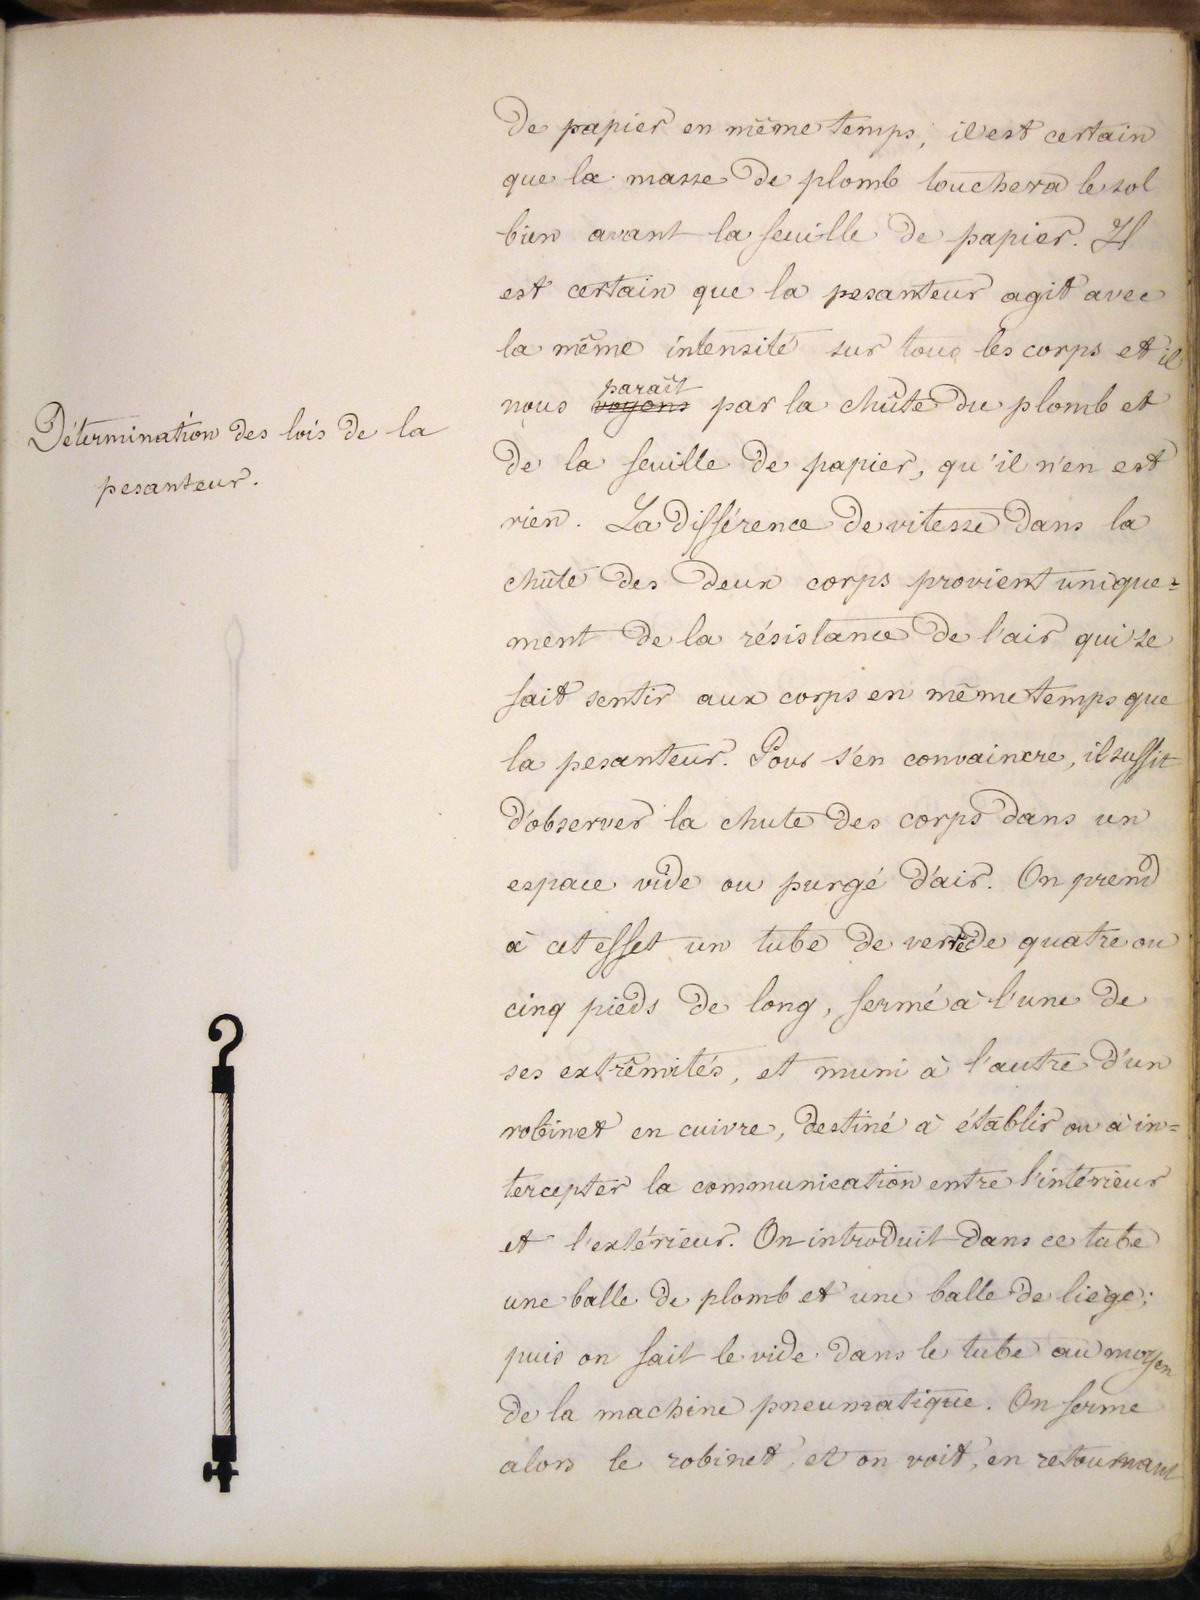 de papier en même temps, il est certain
que la masse de plomb touchera le sol
bien avant la feuille de papier. Il
est certain que la pesanteur agit avec
la même intensité sur tous les corps et il
paraît
nous voyons par la chûte du plomb et
Détermination des lois de la
pesanteur.
de la feuille de papier, qu'il n'en est
rien. La différence de vitesse dans la
chûte des deux corps provient unique=
ment de la résistance de l'air qui se
fait sentir aux corps en même temps que
la pesanteur. Pour s'en convaincre, il suffit
d'observer la chute des corps dans un
espace vide ou purgé d'air. On prend
à cet effet un tube de verre de quatre ou
cinq pieds de long, fermé à l'une de
ses extrêmités, et muni à l'autre d'un
robinet en cuivre, destiné à établir ou à in=
tercepter la communication entre l'intérieur
et l'extérieur. On introduit dans ce tube
une balle de plomb et une balle de liège;
puis on fait le vide dans le tube au moyen
de la machine pneumatique. On ferme
alors le robinet, et on voit, en retournant